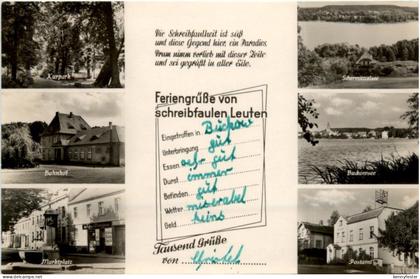 Die Schreibfaulheit ist süß
und diese Gegend hier, ein Paradies.
Drum nimm vorlieb mit dieser Zeile
und sei gegrüßt in aller Eile.
Kurpark
Bahnhof
Marktplatz
Feriengrüße von
schreibfaulen Leuten
Eingetroffen in Buckow
Unterbringung gut
Essen sehr gut
Durst immer
Befinden gut
Wetter miserabel
Geld keins
Tausend Grüße
von
Schermützelsee
Buckowsee
Postamt